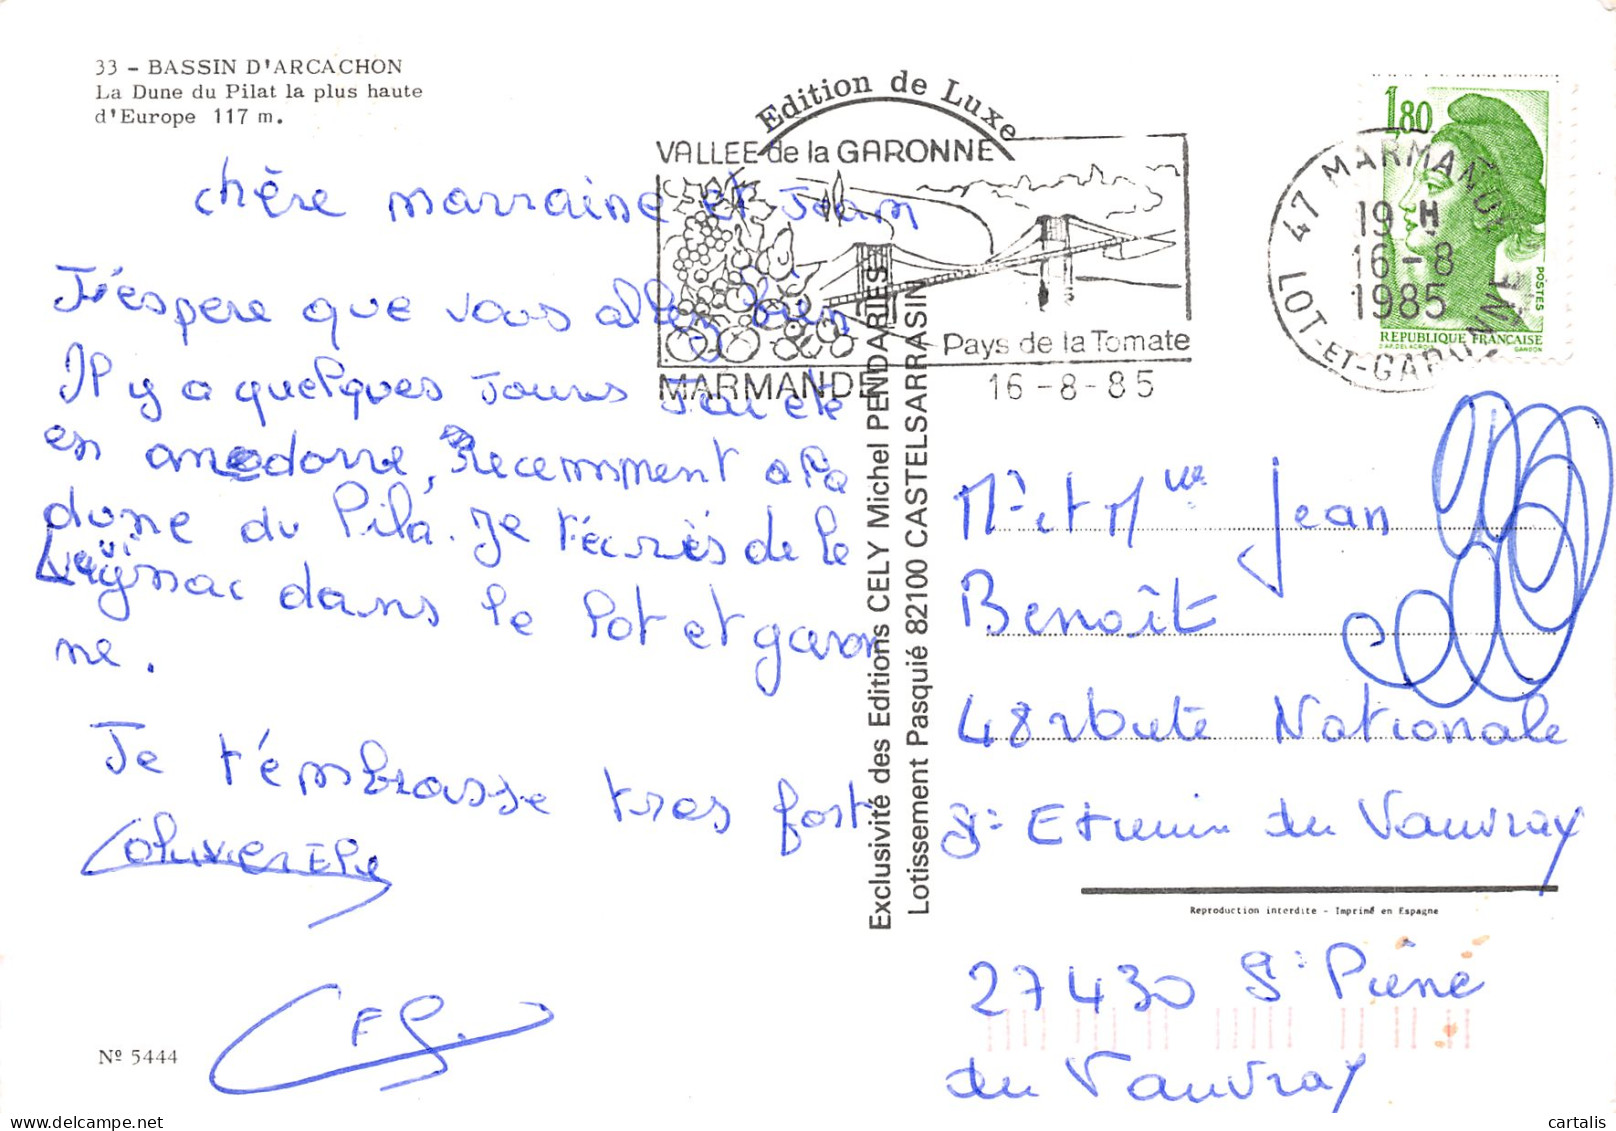 33 - BASSIN D'ARCACHON
La Dune du Pilat la plus haute
d'Europe 117 m.
Edition de Luxe
VALLEE de la GARONNE
Pays de la Tomate
MARMANDE 16-8-85
47 MARMANDE
19 H
16-8
1985
LOT-ET-GARONNE
1,80
POSTES
REPUBLIQUE FRANÇAISE
D'AP. DELACROIX GANDON
chère marraine et Jean
J'éspere que vous allez bien
Il y a quelques Jours J'ai été
en andorre, Recemment a la
dune du Pila. Je t'écris de le
dans le lot et garon
ne.
Je t'embrasse tres fort
Exclusivité des Editions CELY Michel PENDARIES
Lotissement Pasquié 82100 CASTELSARRASIN
Mr et Mme Jean
Benoît
48 route Nationale
St Etienne du Vauvray
Reproduction interdite - Imprimé en Espagne
27430 St Pierre
du Vauvray
Nº 5444
cartalis